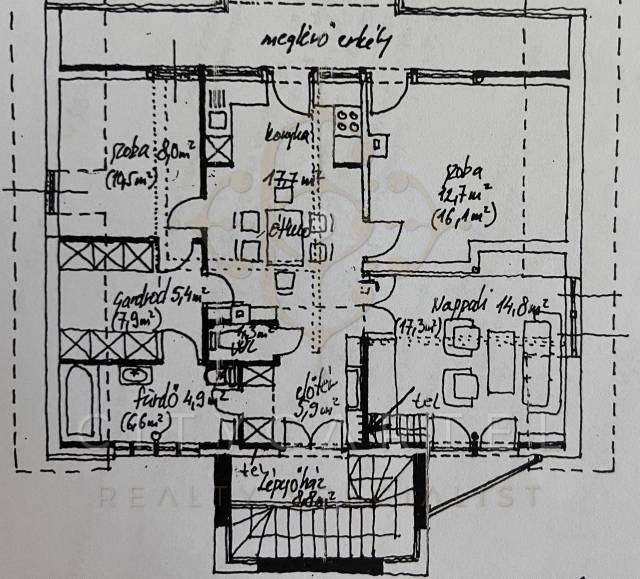 meglévő erkély
szoba 8,0m²
(10,5m²)
konyha
17,7m²
étkező
szoba
12,7m²
(16,1m²)
Gardrob 5,4m²
(7,9m²)
Nappali 14,8m²
(17,3m²)
WC
fürdő 4,9m²
(6,6m²)
előtér
5,9m²
tel
tel
Lépcsőház
8,8m²
REALTY SPECIALIST